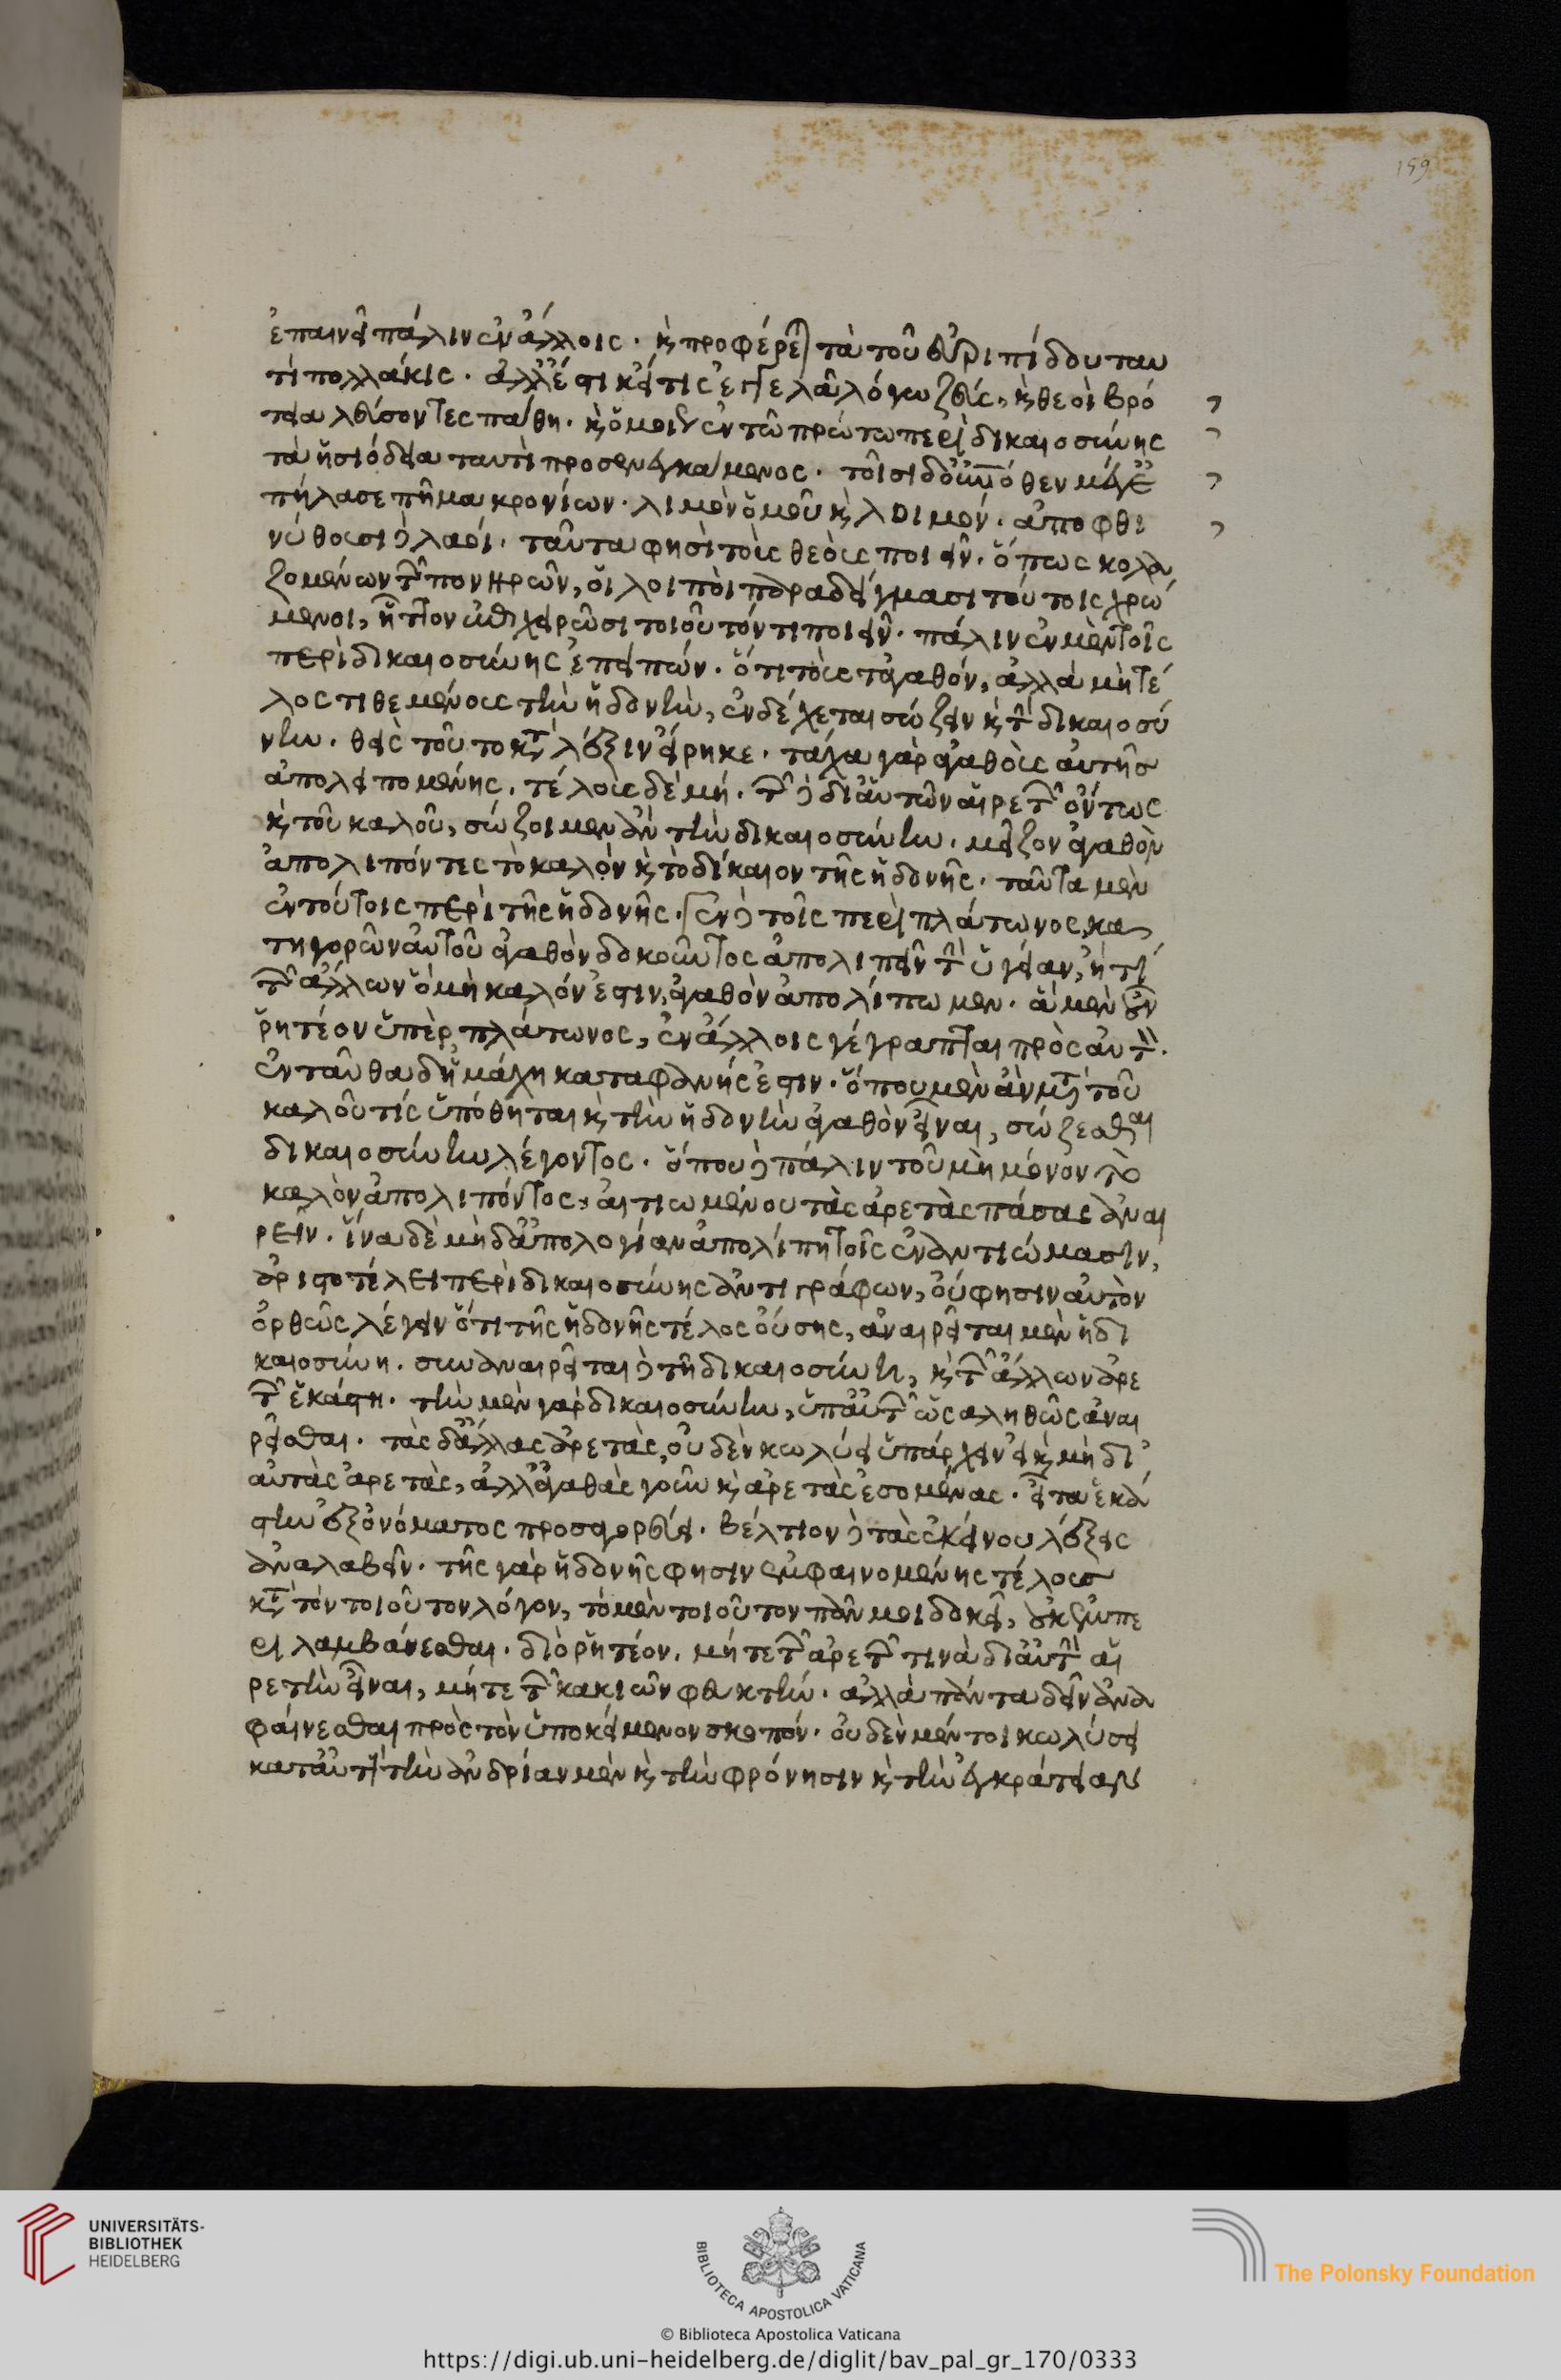 159
ἐπαινεῖ πάλιν ἐν ἄλλοις. καὶ προφέρεται τὰ τοῦ εὐριπίδου ταυ
τὶ πολλάκις. ἀλλ' ἔστι κεἴ τις ἐγγελᾶ λόγω ζεὺς, καὶ θεοὶ βρό
τεια λεύσοντες πάθη. καὶ ὁμοίως ἐν τῶ πρώτω περὶ δικαιοσύνης
τὰ ἡσιόδεια ταυτὶ προσενεγκάμενος. τοῖσι δ' οὐρανόθεν μέγ' ἐ
πήλασε πῆμα κρονίων. λιμὸν ὁμοῦ καὶ λοιμόν. ἀποφθι
νύθουσι δὲ λαοί. ταῦτα φησὶ τοὺς θεοὺς ποιεῖν. ὅπως κολα
ζομένων τῶν πονηρῶν, οἱ λοιποὶ παραδείγμασι τούτοις χρώ
μενοι, ἧττον ἐπιχειρῶσι τοιοῦτόν τι ποιεῖν. πάλιν ἐν μὲν τοῖς
περὶ δικαιοσύνης ἐπειπών. ὅτι τοὺς τἀγαθόν, ἀλλὰ μὴ τέ
λος τιθεμένους τὴν ἡδονὴν, ἐνδέχεται σώζειν καὶ τὴν δικαιοσύ
νην. θεὶς τοῦτο κατὰ λέξιν εἴρηκε. τάχα γὰρ ἀγαθοῦ αὐτῆς
ἀπολειπομένης. τέλους δὲ μή. τῶν δὲ δι' αὑτῶν αἱρετῶν ὄντως
καὶ τοῦ καλοῦ, σώζοιμεν ἂν τὴν δικαιοσύνην. μεῖζον ἀγαθὸν
ἀπολιπόντες τὸ καλὸν καὶ τὸ δίκαιον τῆς ἡδονῆς. ταῦτα μὲν
ἐν τούτοις περὶ τῆς ἡδονῆς. ἐν δὲ τοῖς περὶ πλάτωνος, κα
τηγορῶν αὐτοῦ ἀγαθὸν δοκοῦντος ἀπολιπεῖν τὴν ὑγείαν, ἤ τι
τῶν ἄλλων ὃ μὴ καλόν ἐστιν, ἀγαθὸν ἀπολίπωμεν. ἃ μὲν οὖν
ῥητέον ὑπὲρ πλάτωνος, ἐν ἄλλοις γέγραπται πρὸς αὐτόν.
ἐνταῦθα δ' ἡ μάχη καταφανής ἐστιν. ὅπου μὲν ἂν μετὰ τοῦ
καλοῦ τίς ὑπόθηται καὶ τὴν ἡδονὴν ἀγαθὸν εἶναι, σώζεσθαι
δικαιοσύνην λέγοντος. ὅπου δὲ πάλιν τοῦ μὴ μόνον τὸ
καλὸν ἀπολιπόντος, αἰτιωμένου τὰς ἀρετὰς πάσας ἀναι
ρεῖν. ἵνα δὲ μὴδ' ἀπολογίαν ἀπολίπη τοῖς ἐναντιώμασιν,
ἀριστοτέλει περὶ δικαιοσύνης ἀντιγράφων, οὔ φησιν αὐτὸν
ὀρθῶς λέγειν ὅτι τῆς ἡδονῆς τέλος οὔσης, ἀναιρεῖται μὲν ἡ δι
καιοσύνη. συναναιρεῖται δὲ τῆ δικαιοσύνη, καὶ τῶν ἄλλων ἀρε
τῶν ἑκάστη. τὴν μὲν γὰρ δικαιοσύνην, ὑπ' αὐτῶν ὡς αληθῶς ἀναι
ρεῖσθαι. τὰς δ' ἄλλας ἀρετὰς, οὐδὲν κωλύει ὑπάρχειν εἰ καὶ μὴ δι'
αὑτὰς ἀρετὰς, ἀλλ' ἀγαθὰς γοῦν καὶ ἀρετὰς ἐσομένας. εἶτα ἑκά
στην ἐξ ὀνόματος προσαγορεύει. βέλτιον δὲ τὰς ἐκείνου λέξεις
ἀναλαβεῖν. τῆς γὰρ ἡδονῆς φησιν ἐμφαινομένης τέλους
κατὰ τὸν τοιοῦτον λόγον, τὸ μὲν τοιοῦτον πᾶν μοι δοκεῖ, οὐκ ἐμπε
ριλαμβάνεσθαι. διὸ ῥητέον. μήτε τῶν ἀρετῶν τινὰ δι' αὑτὴν αἱ
ρετὴν εἶναι, μήτε τῶν κακιῶν φευκτήν. ἀλλὰ πάντα δεῖν ἀνα
φαίνεσθαι πρὸς τὸν ὑποκείμενον σκοπόν. οὐδὲν μέντοι κωλύσει
κατ' αὐτοὺς τὴν ἀνδρίαν μὲν καὶ τὴν φρόνησιν καὶ τὴν ἐγκράτειαν
UNIVERSITÄTS-
BIBLIOTHEK
HEIDELBERG
BIBLIOTECA APOSTOLICA VATICANA
The Polonsky Foundation
© Biblioteca Apostolica Vaticana
https://digi.ub.uni-heidelberg.de/diglit/bav_pal_gr_170/0333